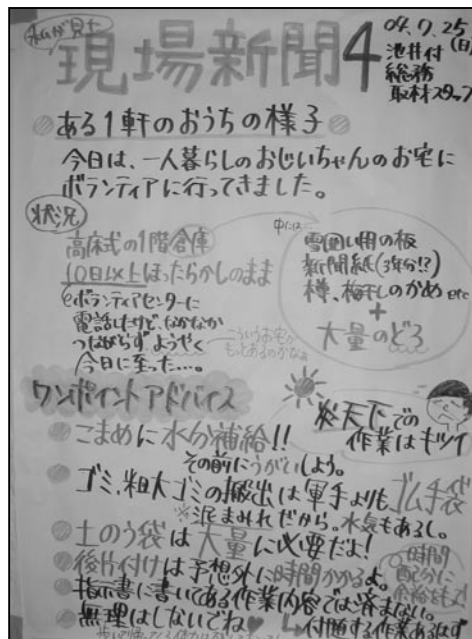 私が見た
現場新聞4
04.7.25(日)
池井付
総務
取材スタッフ
ある1軒のおうちの様子
今日は、一人暮らしのおじいちゃんのお宅に
ボランティアに行ってきました。
状況
高床式の1階倉庫
10日以上ほったらかしのまま
ボランティアセンターに
電話したけど、なかなか
つながらずようやく
今日に至った…。
こういうお宅が
もっとあるのかなぁ
中には
雪囲い用の板
新聞紙(3年分!?)
樽、梅干しのかめ etc
+
大量のどろ
ワンポイントアドバイス
炎天下での
作業はキツイ
こまめに水分補給!!
その前にうがいしよう。
ゴミ、粗大ゴミの搬出は軍手よりもゴム手袋
※泥まみれだから。水気もあるし。
土のう袋は大量に必要だよ!
後片付けは予想外に時間かかるよ。
時間
配分に
余裕をもって
指示書に書いてある作業内容では済まない。
付随する作業あるはず
無理はしないでね♥